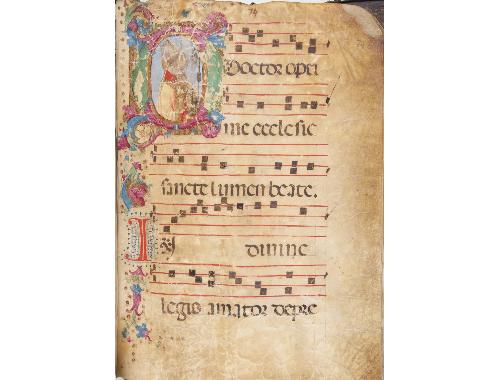 O Doctor opti
me ecclesie
sancte lumen beate.
I N divine
legis amator depre